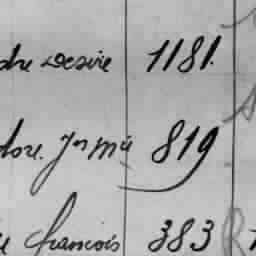 dre Desire 1181.
dore. Jn Mie 819
ie francois 383